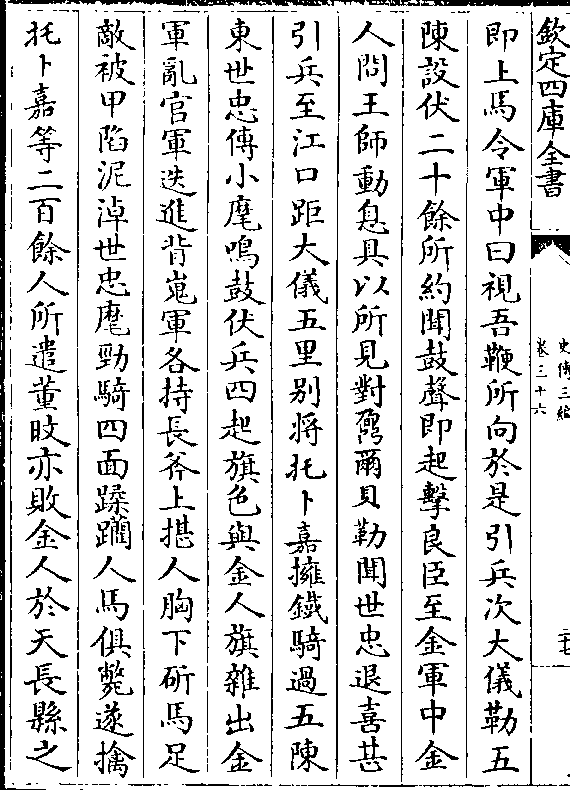 欽定四庫全書
史傳三編
卷三十六
二十七
即上馬令軍中曰視吾鞭所向於是引兵次大儀勒五
陳設伏二十餘所約聞鼓聲即起擊良臣至金軍中金
人問王師動息具以所見對鄂爾貝勒聞世忠退喜甚
引兵至江口距大儀五里别將托卜嘉擁鐵騎過五陳
東世忠傳小麾鳴鼓伏兵四起旗色與金人旗雜出金
軍亂官軍迭進背嵬軍各持長斧上揕人胸下斫馬足
敵被甲陷泥淖世忠麾勁騎四面蹂躪人馬俱斃遂擒
托卜嘉等二百餘人所遣董旼亦敗金人於天長縣之